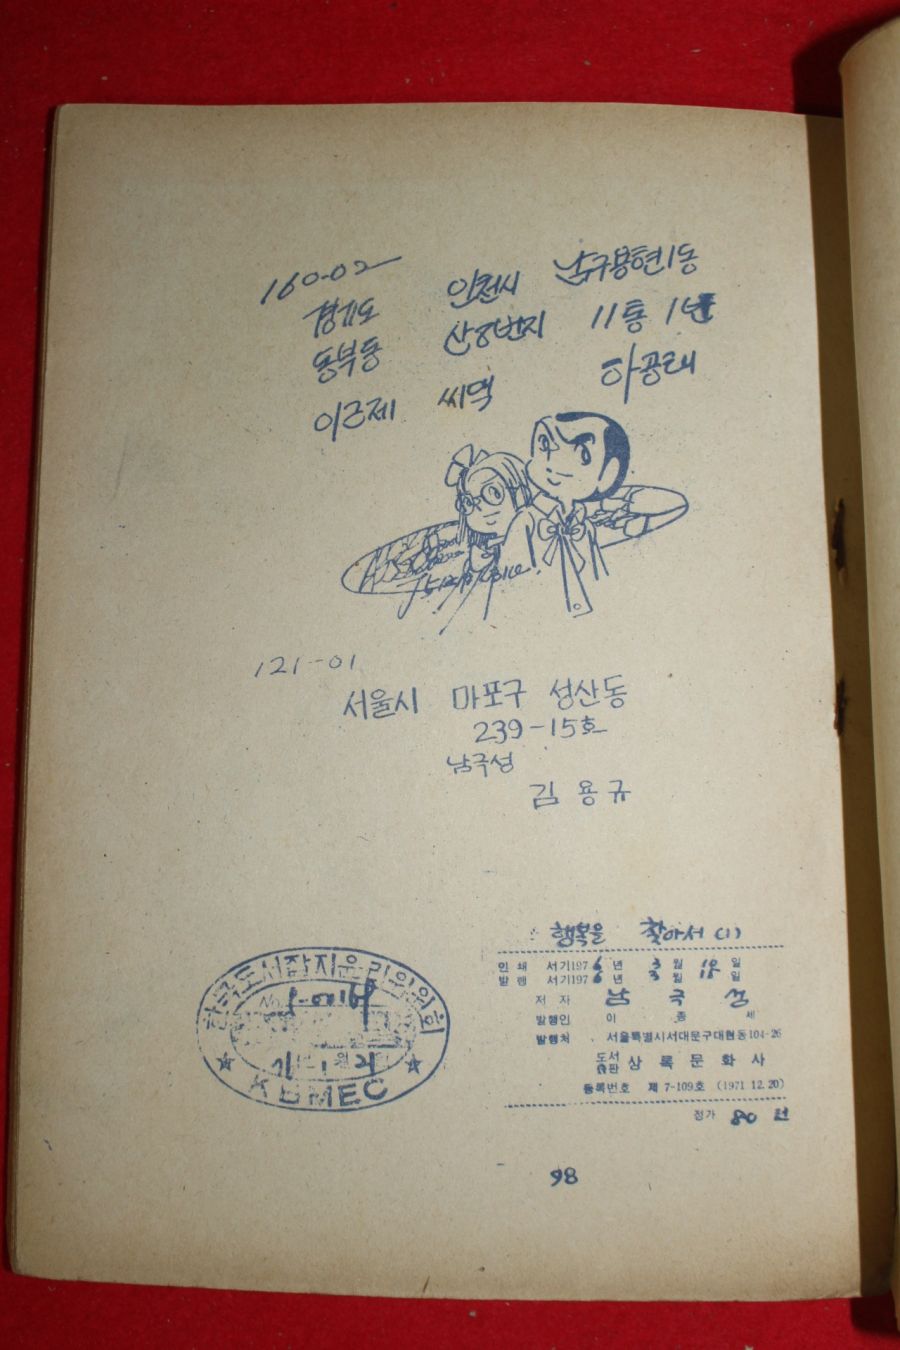 160-02
경기도 인천시 남구용현1동
동부동 산8번지 11통 1반
이근제 씨댁 하공래
121-01
서울시 마포구 성산동
239-15호
남궁성
김용규
행복을 찾아서 (1)
인쇄 서기1976년 3월 18일
발행 서기1976년 3월 18일
저자 남궁성
발행인 이종세
발행처 서울특별시서대문구대현동104-26
도서출판 상록문화사
등록번호 제7-109호 (1971 12.20)
정가 80원
한국도서잡지윤리위원회
KBMEC
98